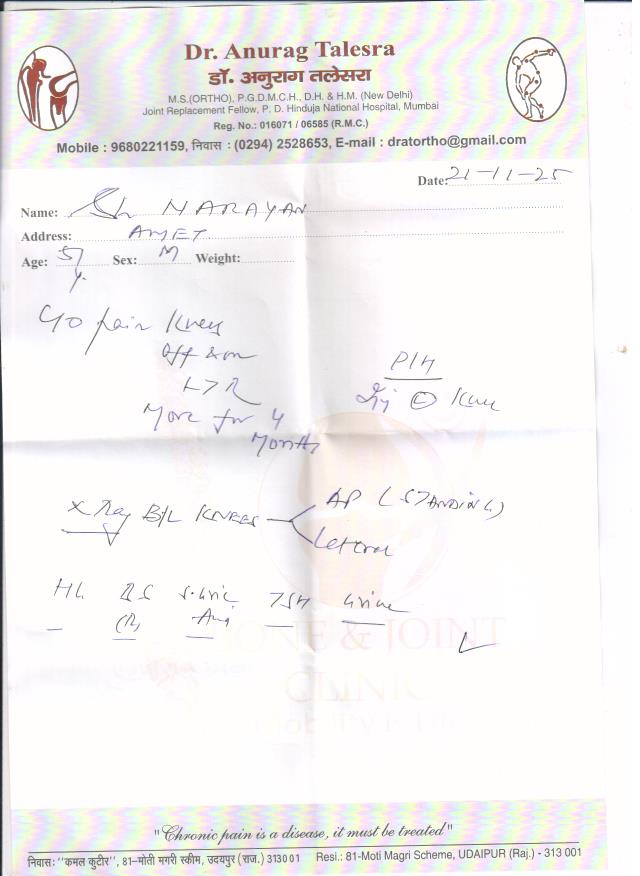 Dr. Anurag Talesra
डॉ. अनुराग तलेसरा
M.S.(ORTHO), P.G.D.M.C.H., D.H. & H.M. (New Delhi)
Joint Replacement Fellow, P. D. Hinduja National Hospital, Mumbai
Reg. No.: 016071 / 06585 (R.M.C.)
Mobile : 9680221159, निवास : (0294) 2528653, E-mail : dratortho@gmail.com
Date: 21-11-25
Name: Sh NARAYAN
Address: AMET
Age: 57 y. Sex: M Weight:
pain Knees
off & on
L>R
More for 4
Months
P/H
Knee
X Ray B/L KNEES
AP (STANDING)
Lateral
S. Uric TSH Urine
BONE & JOINT
CLINIC
"Chronic pain is a disease, it must be treated"
निवास: "कमल कुटीर", 81–मोती मगरी स्कीम, उदयपुर (राज.) 313001 Resi.: 81-Moti Magri Scheme, UDAIPUR (Raj.) - 313 001